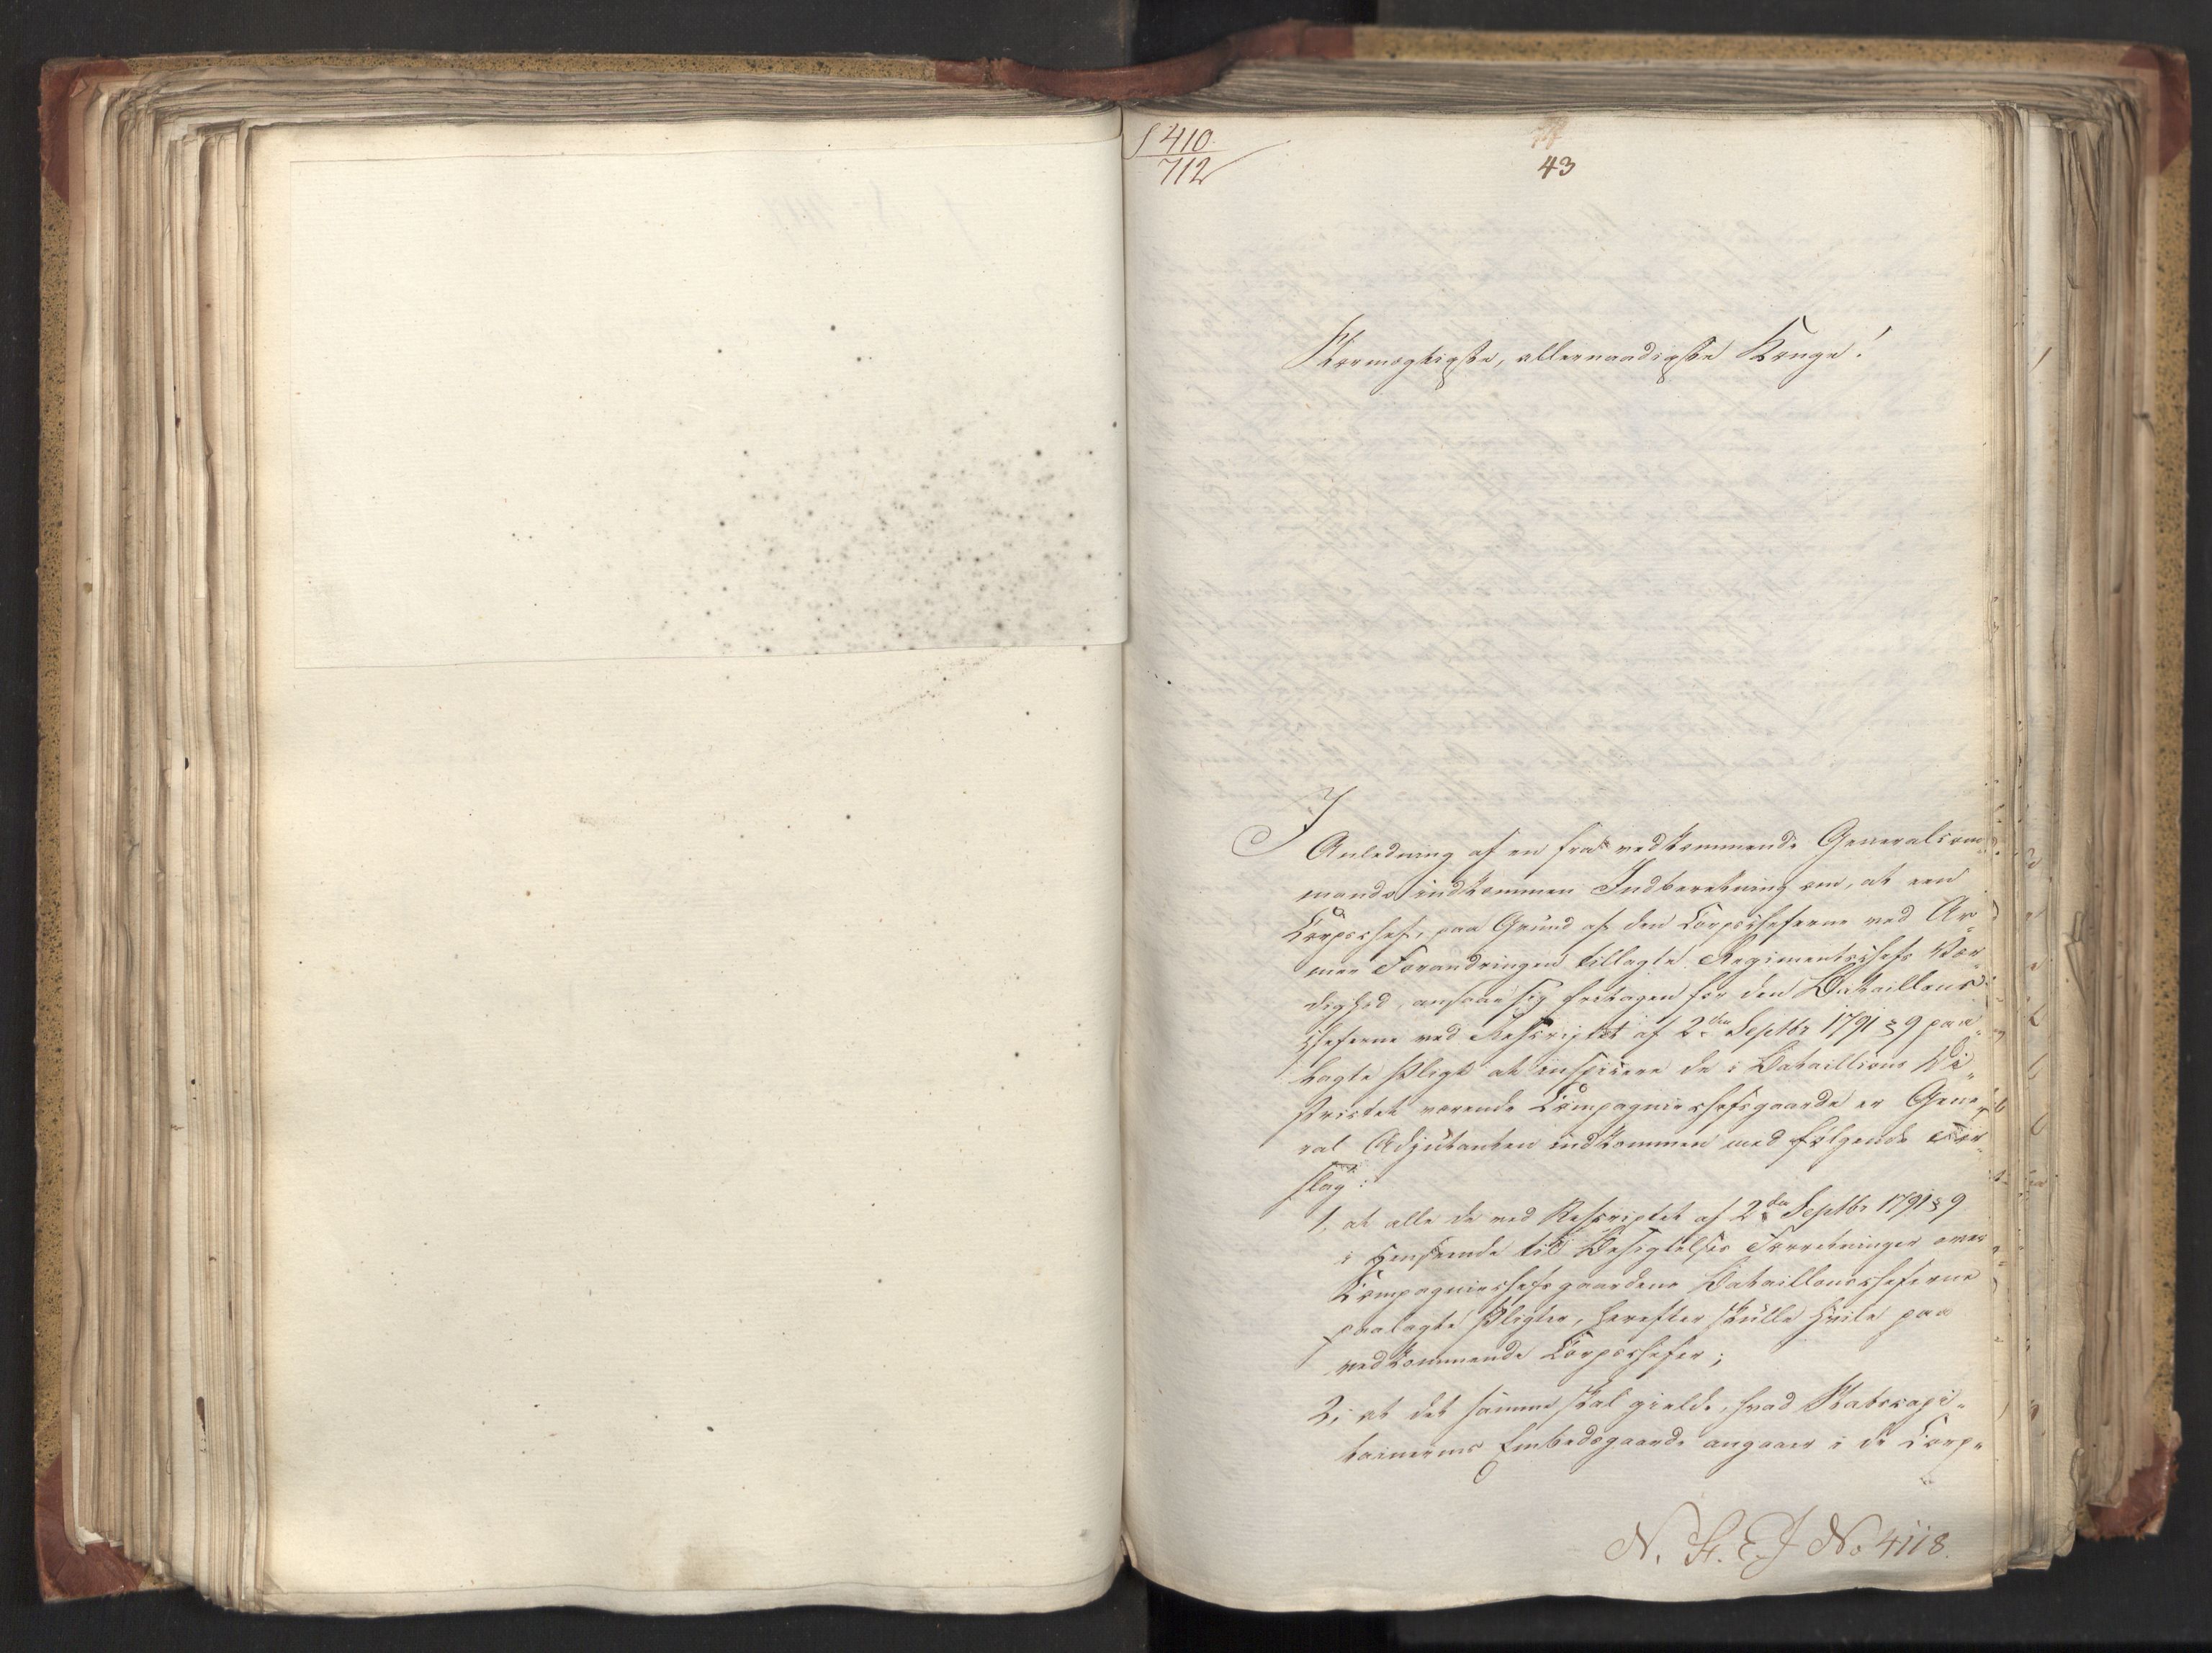 S 410
712
43
Stormægtigste, allernaadigste Konge!
I
Anledning af en fra vedkommende Generalcom„
mando indkommen Indberetning om, at een
Corpschef, paa Grund af den Corpscheferne ved Ar„
mee Forandringen tillagte Regimentschefs Vær„
dighed, ansaae sig fritagen for den Bataillons„
cheferne ved Rescriptet af 2den Septbr 1791 § 9 paa„
lagte Pligt at inspicere de i Bataillions Di„
strictet værende Compagniechefsgaarde er Gene„
ral Adjutanten indkommen med følgende For„
slag:
1, at alle de ved Rescriptet af 2den Septbr 1791 § 9
i Henseende til Besigtelses Forretninger over
Compagniechefsgaardene Bataillonscheferne
paalagte Pligter, herefter skulle hvile paa
vedkommende Corpschefer;
2, at det samme skal gielde, hvad Stabscapi„
tainernes Embedsgaarde angaaer i de Corp„
N. H. E. J No 4118.